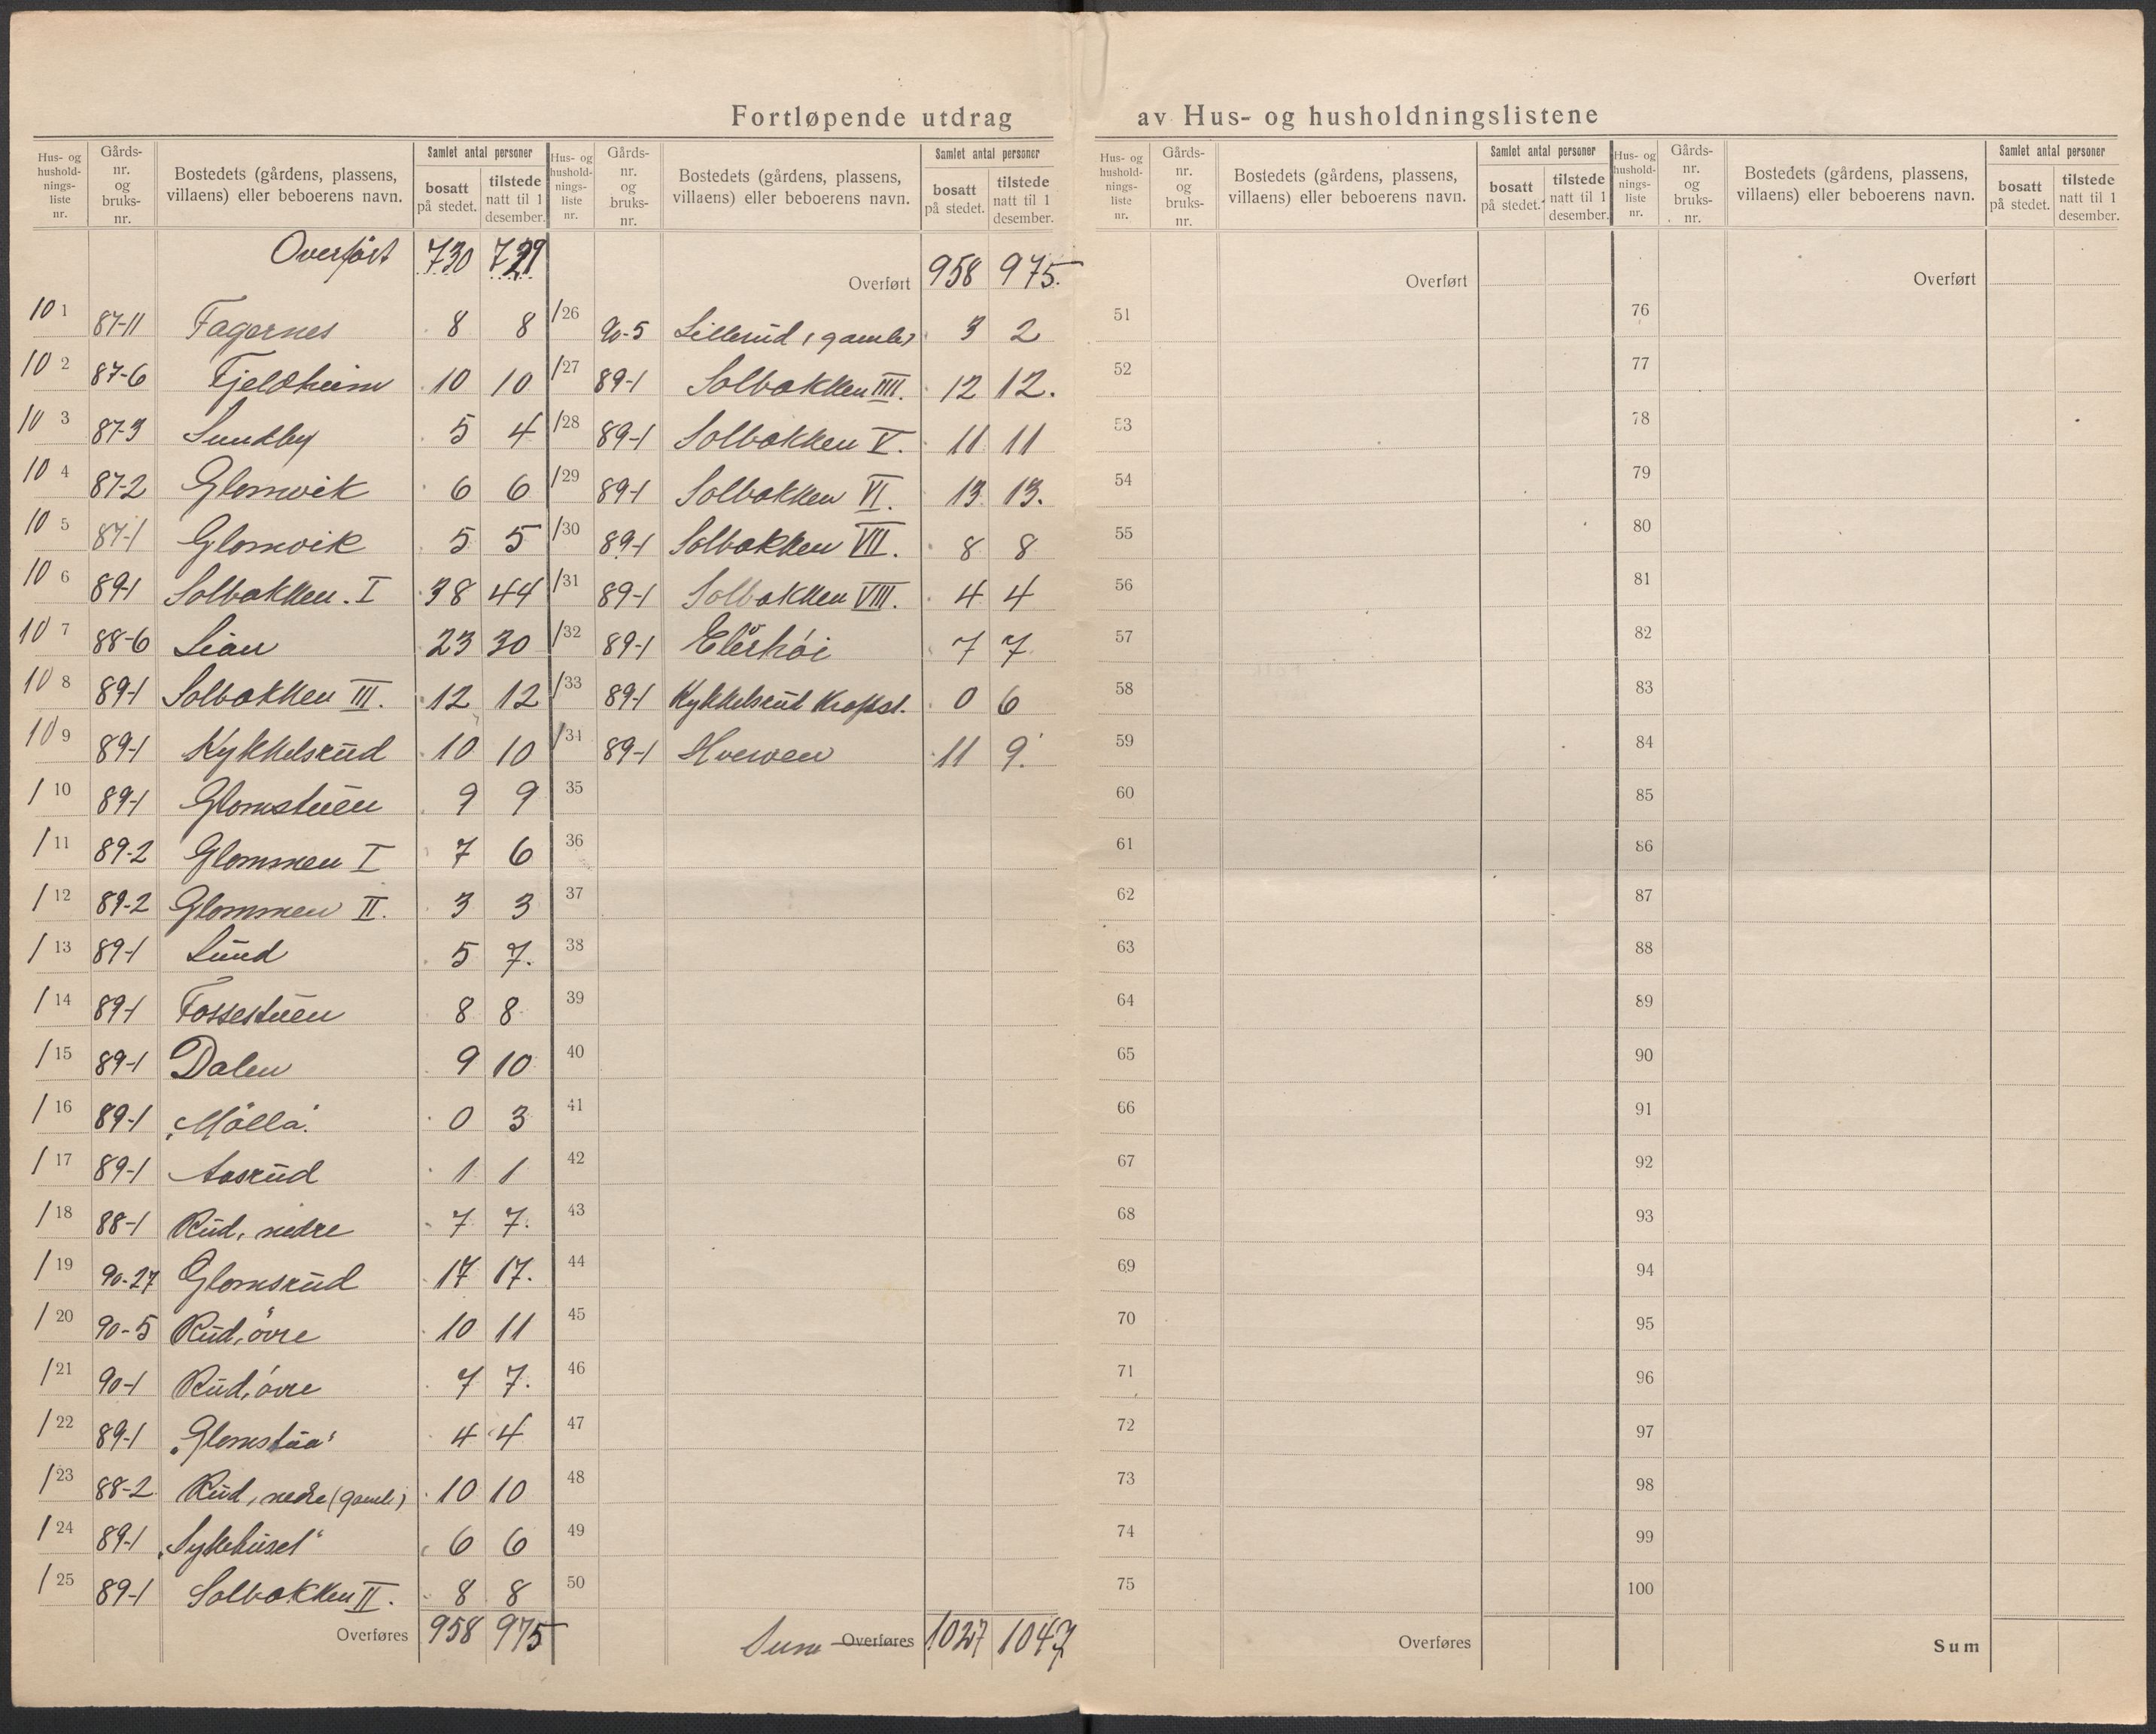 Fortløpende utdrag av Hus- og husholdningslistene
Hus- og hushold- nings- liste nr. Gårds- nr. og bruks- nr. Bostedets (gårdens, plassens, villaens) eller beboerens navn. Samlet antal personer bosatt på stedet. tilstede natt til 1 desember.
Overført 730 729
10 1 87-11 Fagernes 8 8
10 2 87-6 Fjeldheim 10 10
10 3 87-3 Sundby 5 4
10 4 87-2 Glomvik 6 6
10 5 87-1 Glomvik 5 5
10 6 89-1 Solbakken. I 38 44
10 7 88-6 Lian 23 30
10 8 89-1 Solbakken III. 12 12
10 9 89-1 Kykkelsrud 10 10
1 10 89-1 Glomstuen 9 9
1 11 89-2 Glommen I 7 6
1 12 89-2 Glommen II. 3 3
1 13 89-1 Lund 5 7.
1 14 89-1 Fossestuen 8 8
1 15 89-1 Dalen 9 10
1 16 89-1 "Mölla" 0 3
1 17 89-1 Aasrud 1 1
1 18 88-1 Rud, nedre 7 7.
1 19 90-27 Glomsrud 17 17.
1 20 90-5 Rud, övre 10 11
1 21 90-1 Rud, övre 7 7.
1 22 89-1 "Glomstua" 4 4
1 23 88-2 Rud, nedre (gamle) 10 10
1 24 89-1 "Sykehuset" 6 6
1 25 89-1 Solbakken II. 8 8
Overføres 958 975
Hus- og hushold- nings- liste nr. Gårds- nr. og bruks- nr. Bostedets (gårdens, plassens, villaens) eller beboerens navn. Samlet antal personer bosatt på stedet. tilstede natt til 1 desember.
Overført 958 975.
1 26 90-5 Lillerud, gamle 3 2
1 27 89-1 Solbakken IIII. 12 12.
1 28 89-1 Solbakken V. 11 11
1 29 89-1 Solbakken VI. 13 13.
1 30 89-1 Solbakken VII. 8 8
1 31 89-1 Solbakken VIII. 4 4
1 32 89-1 7 7
1 33 89-1 Kykkelsrud 0 6
1 34 89-1 Hverven 11 9.
35
36
37
38
39
40
41
42
43
44
45
46
47
48
49
50
Sum Overføres 1027 1047
Hus- og hushold- nings- liste nr. Gårds- nr. og bruks- nr. Bostedets (gårdens, plassens, villaens) eller beboerens navn. Samlet antal personer bosatt på stedet. tilstede natt til 1 desember.
Overført
51
52
53
54
55
56
57
58
59
60
61
62
63
64
65
66
67
68
69
70
71
72
73
74
75
Overføres
Hus- og hushold- nings- liste nr. Gårds- nr. og bruks- nr. Bostedets (gårdens, plassens, villaens) eller beboerens navn. Samlet antal personer bosatt på stedet. tilstede natt til 1 desember.
Overført
76
77
78
79
80
81
82
83
84
85
86
87
88
89
90
91
92
93
94
95
96
97
98
99
100
Sum